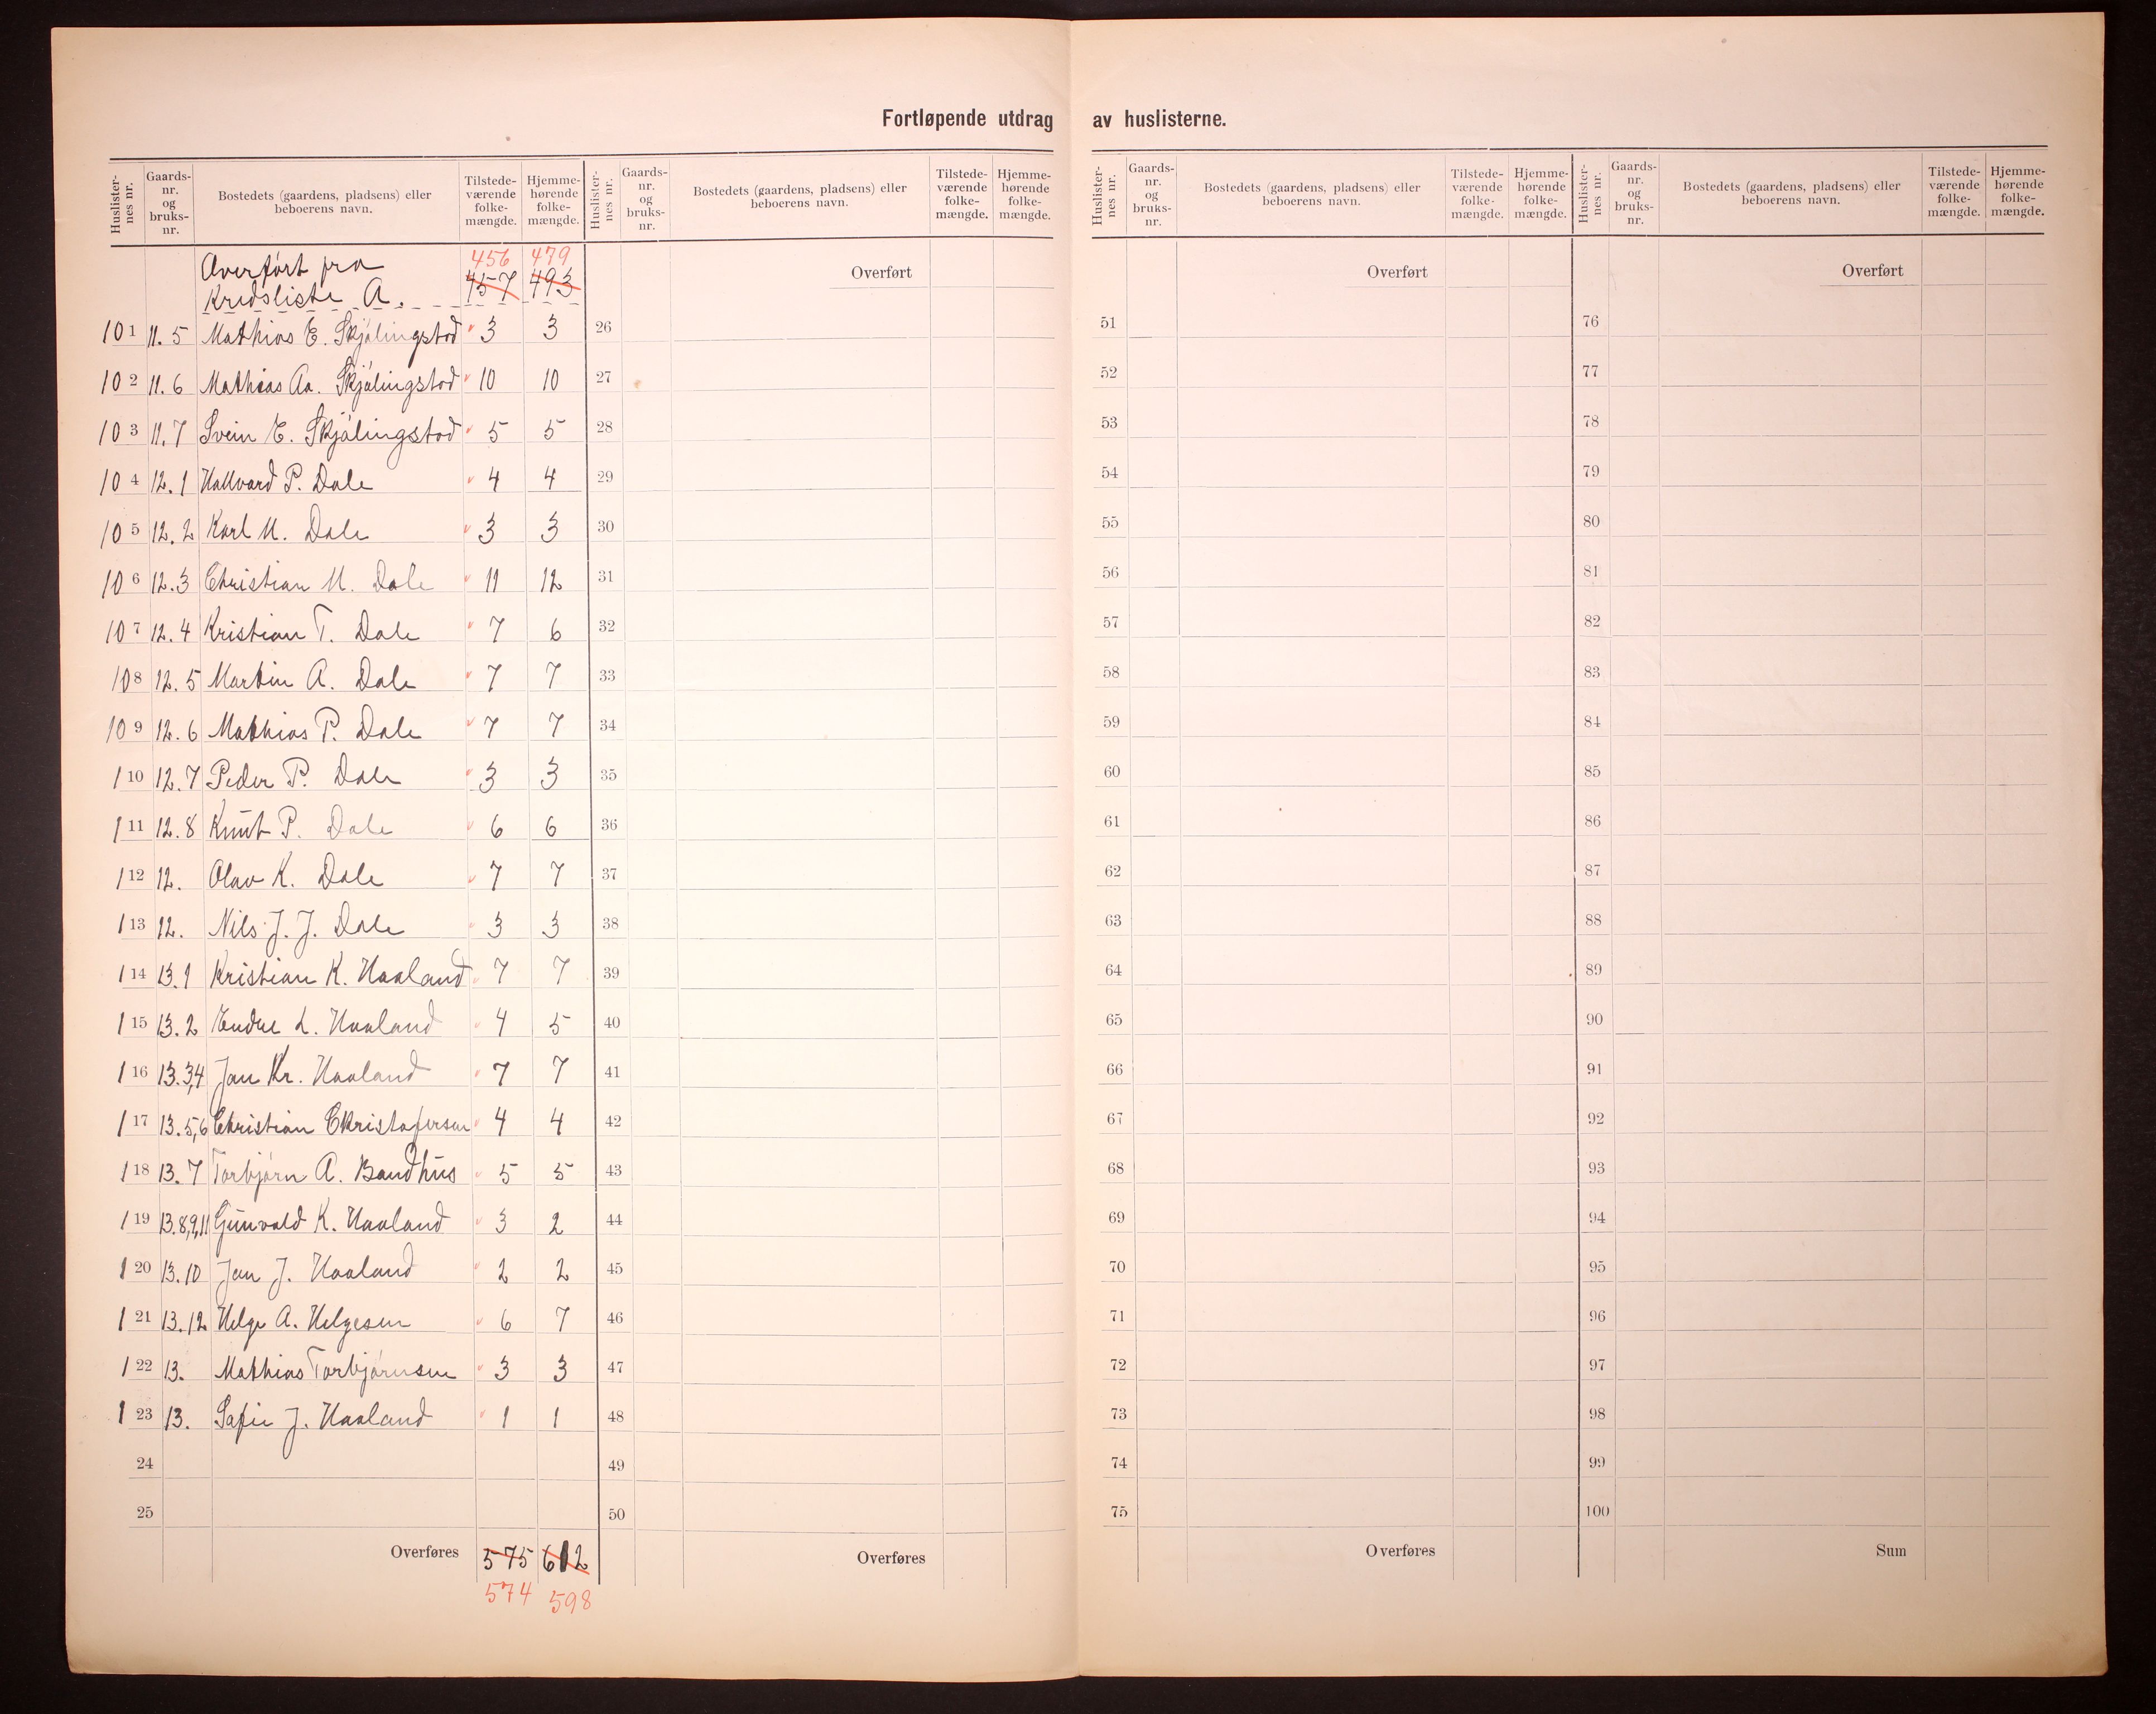 Fortløpende utdrag av huslisterne.
Huslisternes nr. Gaards-nr. og bruks-nr. Bostedets (gaardens, pladsens) eller beboerens navn. Tilstede-værende folke-mængde. Hjemme-hørende folke-mængde.
456 479
Overført fra 457 493
Kredsliste A.
101 11.5 Mathias E. Skjølingstad 3 3
102 11.6 Mathias Aa. Skjølingstad 10 10
103 11.7 Svein E. Skjølingstad 5 5
104 12.1 Hallvard P. Dale 4 4
105 12.2 Karl M. Dale 3 3
106 12.3 Christian M. Dale 11 12
107 12.4 Kristian T. Dale 7 6
108 12.5 Martin A. Dale 7 7
109 12.6 Mathias P. Dale 7 7
110 12.7 Peder P. Dale 3 3
111 12.8 Knut P. Dale 6 6
112 12. Olav K. Dale 7 7
113 12. Nils J. J. Dale 3 3
114 13.1 Kristian K. Haaland 7 7
115 13.2 Endre L. Haaland 4 5
116 13.3,4 Jan Kr. Haaland 7 7
117 13.5,6 Christian Christofersen 4 4
118 13.7 Torbjørn A. Bandhus 5 5
119 13.8,9,11 Gunvald K. Haaland 3 2
120 13.10 Jan J. Haaland 2 2
121 13.12 Helge A. Helgesen 6 7
122 13. Mathias Torbjørnsen 3 3
123 13. Sofie J. Haaland 1 1
24
25
Overføres 575 612
574 598
Huslisternes nr. Gaards-nr. og bruks-nr. Bostedets (gaardens, pladsens) eller beboerens navn. Tilstede-værende folke-mængde. Hjemme-hørende folke-mængde.
Overført
26
27
28
29
30
31
32
33
34
35
36
37
38
39
40
41
42
43
44
45
46
47
48
49
50
Overføres
Huslister-nes nr. Gaards-nr. og bruks-nr. Bostedets (gaardens, pladsens) eller beboerens navn. Tilstede-værende folke-mængde. Hjemme-hørende folke-mængde.
Overført
51
52
53
54
55
56
57
58
59
60
61
62
63
64
65
66
67
68
69
70
71
72
73
74
75
Overføres
Huslister-nes nr. Gaards-nr. og bruks-nr. Bostedets (gaardens, pladsens) eller beboerens navn. Tilstede-værende folke-mængde. Hjemme-hørende folke-mængde.
Overført
76
77
78
79
80
81
82
83
84
85
86
87
88
89
90
91
92
93
94
95
96
97
98
99
100
Sum